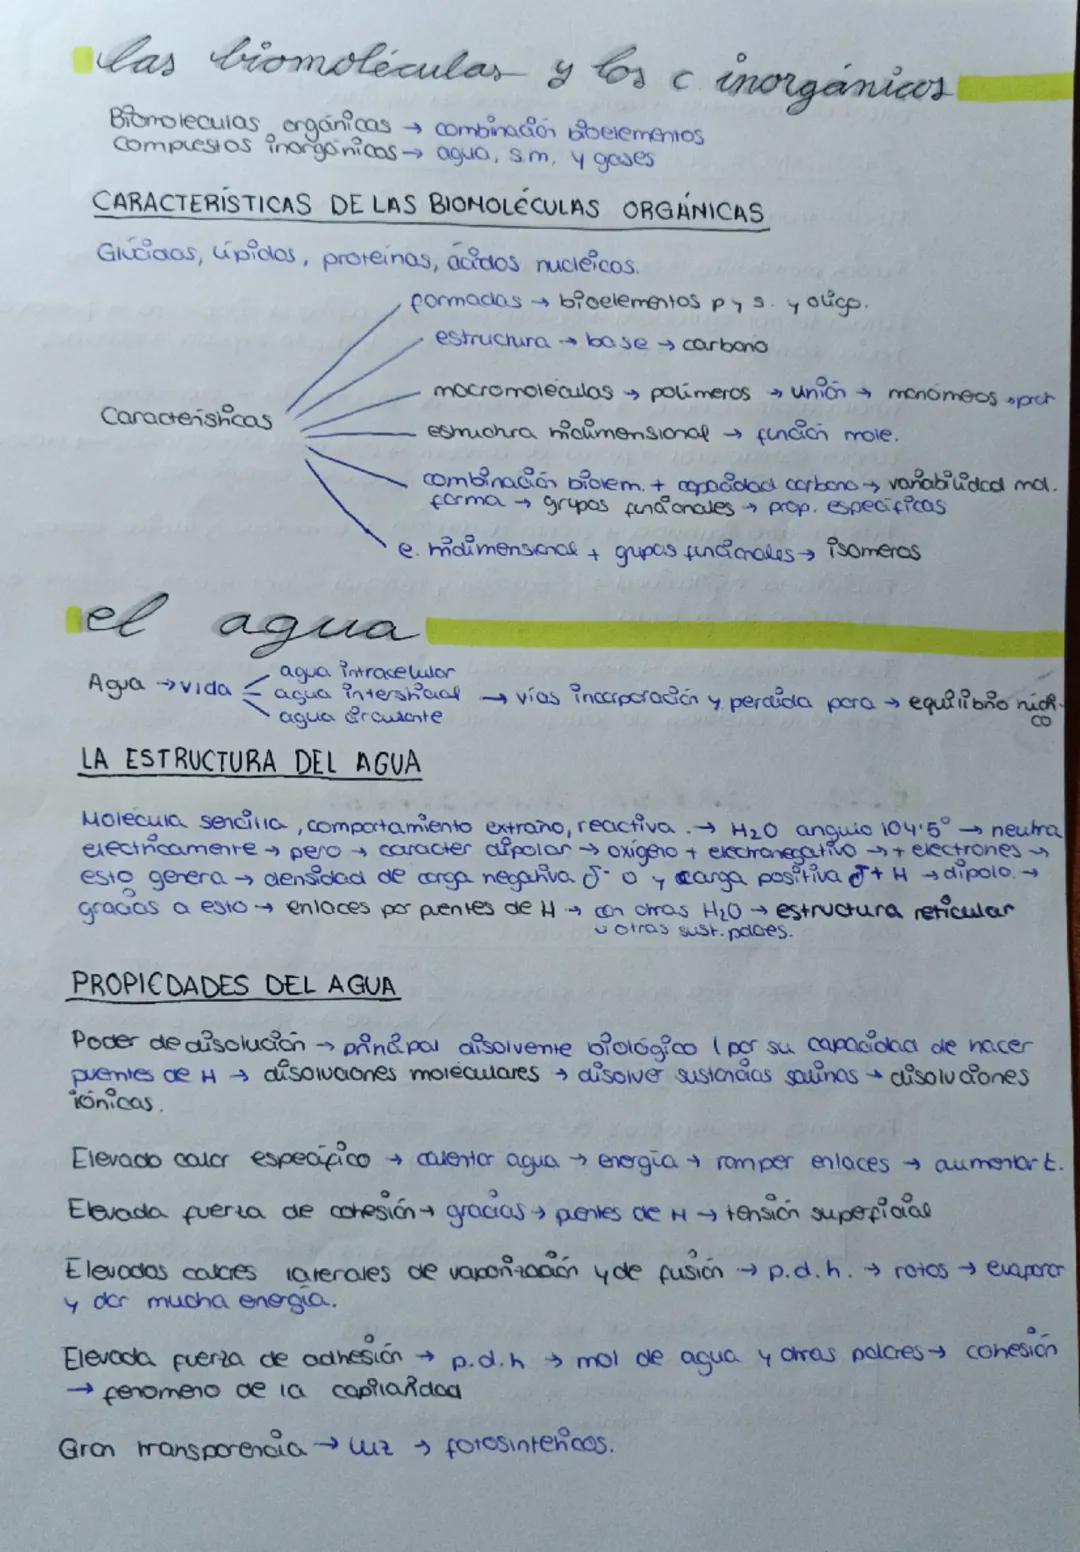 las biomoléculas y los c inorgánicos
Biomoleculas orgánicas → combinación bioelementos
compuestos inorgánicos → agua, s.m. y gases
CARACTERÍSTICAS DE LAS BIOMOLÉCULAS ORGÁNICAS
Glúcidos, Lípidos, proteínas, ácidos nucleicos.
formadas → bioelementos p y s. y oligo.
estructura → base → carbono
macromoléculas → polímeros → unión → monómeros
Características
estructura tridimensional → función mole.
combinación biolem. + capacidad carbono → variabilidad mol.
forma → grupos funcionales → prop. específicas
e. tridimensional + grupos funcionales → isomeros
el agua
agua intracelular
Agua → vida agua intersticial → vías incorporación y perdida para → equilibrio hídri-
agua circulante co
LA ESTRUCTURA DEL AGUA
Molécula sencilla, comportamiento extraño, reactiva. → H2O angulo 104'5° → neutra
electricamente → pero → caracter dipolar → oxígeno + electronegativo → + electrones →
esto genera → densidad de carga negativa δ- o y carga positiva δ+ H → dipolo. →
gracias a esto → enlaces por puentes de H → con otras H2O → estructura reticular
u otras sust. polares.
PROPIEDADES DEL AGUA
Poder de disolución → principal disolvente biológico ( por su capacidad de hacer
puentes de H → disoluciones moleculares → disolver sustancias salinas → disoluciones
iónicas.
Elevado calor específico → calentar agua → energía → romper enlaces → aumentar t.
Elevada fuerza de cohesión → gracias → puentes de H → tensión superficial
Elevados calores laterales de vaporización y de fusión → p.d.h. → rotos → evaporar
y dar mucha energía.
Elevada fuerza de adhesión → p.d.h → mol de agua y otras polares → cohesión
→ fenomeno de la capilaridad
Gran transparencia → luz → fotosinteticos.